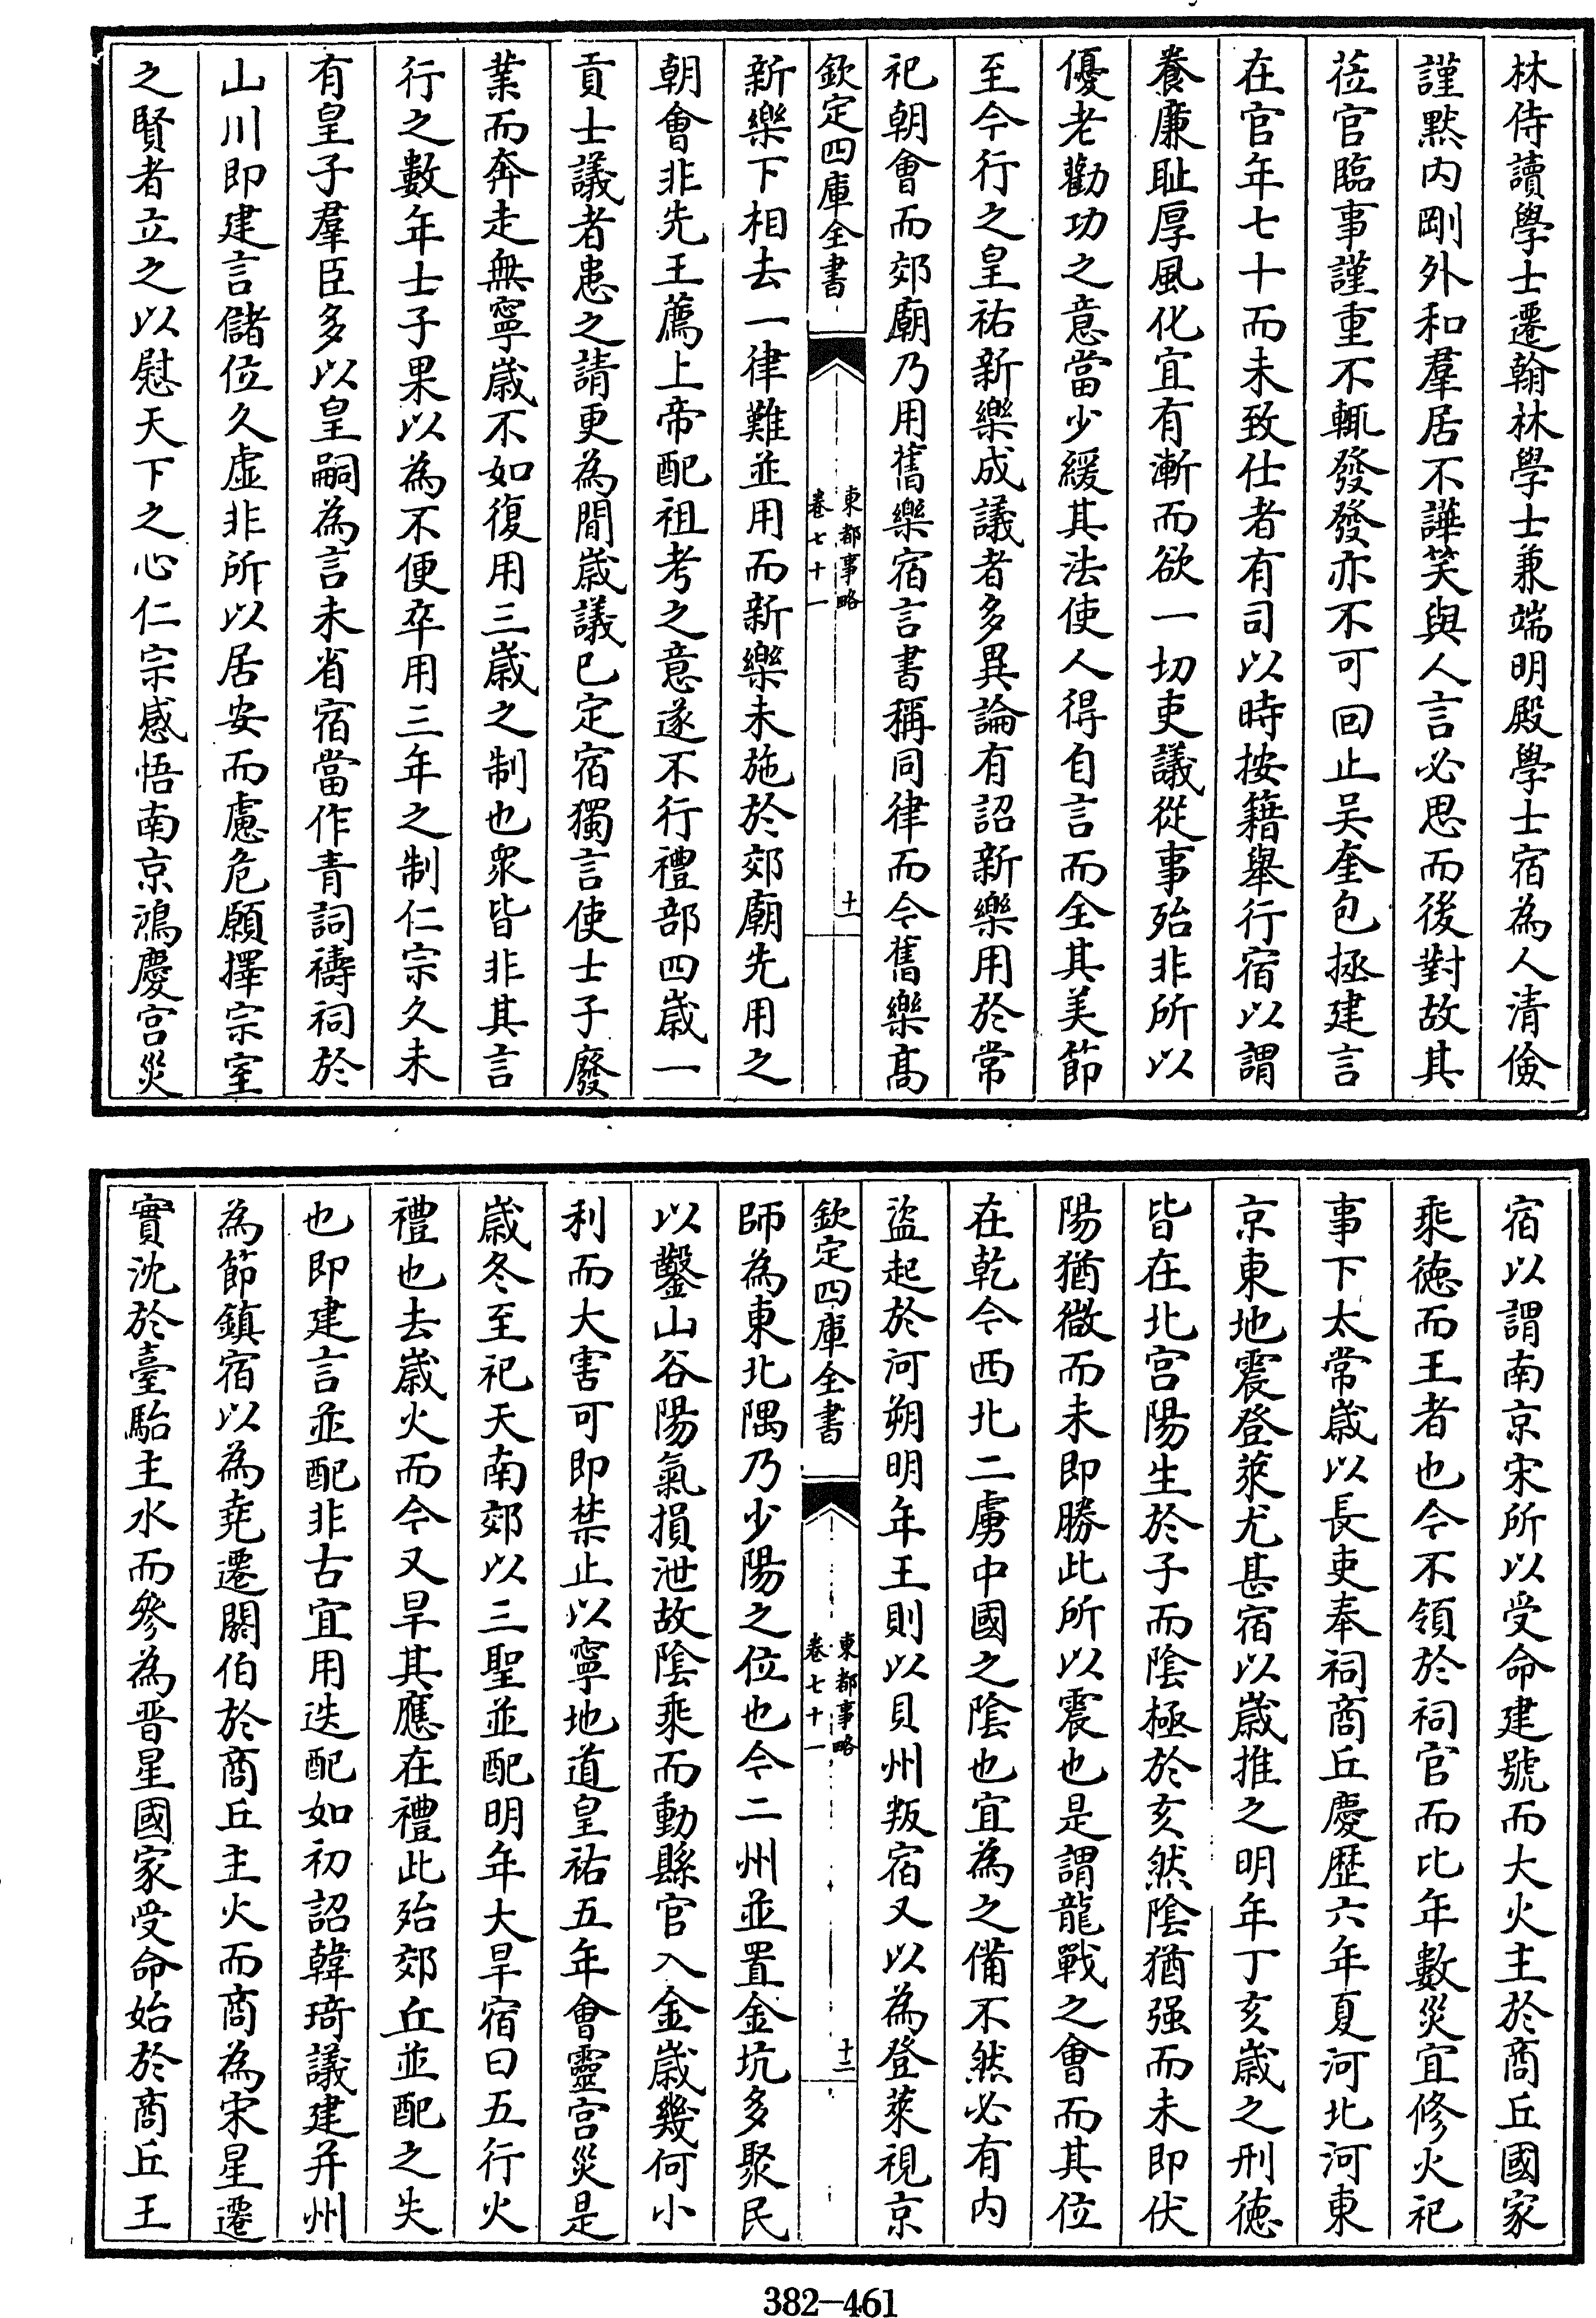 林侍讀學士遷翰林學士兼端明殿學士宿為人清儉
謹黙内剛外和羣居不譁笑與人言必思而後對故其
莅官臨事謹重不輒發發亦不可回止吴奎包拯建言
在官年七十而未致仕者有司以時按籍舉行宿以謂
養廉耻厚風化宜有漸而欲一切吏議從事殆非所以
優老勸功之意當少緩其法使人得自言而全其美節
至今行之皇祐新樂成議者多異論有詔新樂用於常
祀朝會而郊廟乃用舊樂宿言書稱同律而今舊樂髙
欽定四庫全書
東都事略
卷七十一
十一
新樂下相去一律難並用而新樂未施於郊廟先用之
朝會非先王薦上帝配祖考之意遂不行禮部四歲一
貢士議者患之請更為間歲議已定宿獨言使士子廢
業而奔走無寧歲不如復用三歲之制也衆皆非其言
行之數年士子果以為不便卒用三年之制仁宗久未
有皇子羣臣多以皇嗣為言未省宿當作青詞禱祠於
山川即建言儲位久虛非所以居安而慮危願擇宗室
之賢者立之以慰天下之心仁宗感悟南京鴻慶宫災
宿以謂南京宋所以受命建號而大火主於商丘國家
乘徳而王者也今不領於祠官而比年數災宜修火祀
事下太常歲以長吏奉祠商丘慶歴六年夏河北河東
京東地震登萊尤甚宿以歲推之明年丁亥歲之刑徳
皆在北宫陽生於子而陰極於亥然陰猶强而未即伏
陽猶微而未即勝此所以震也是謂龍戰之會而其位
在乾今西北二虜中國之陰也宜為之備不然必有内
盜起於河朔明年王則以貝州叛宿又以為登萊視京
欽定四庫全書
東都事略
卷七十一
十二
師為東北隅乃少陽之位也今二州並置金坑多聚民
以鑿山谷陽氣損泄故陰乘而動縣官入金歲幾何小
利而大害可即禁止以寧地道皇祐五年會靈宫災是
歲冬至祀天南郊以三聖並配明年大旱宿曰五行火
禮也去歲火而今又旱其應在禮此殆郊丘並配之失
也即建言並配非古宜用迭配如初詔韓琦議建并州
為節鎮宿以為堯遷閼伯於商丘主火而商為宋星遷
實沈於臺駘主水而參為晋星國家受命始於商丘王
382—461